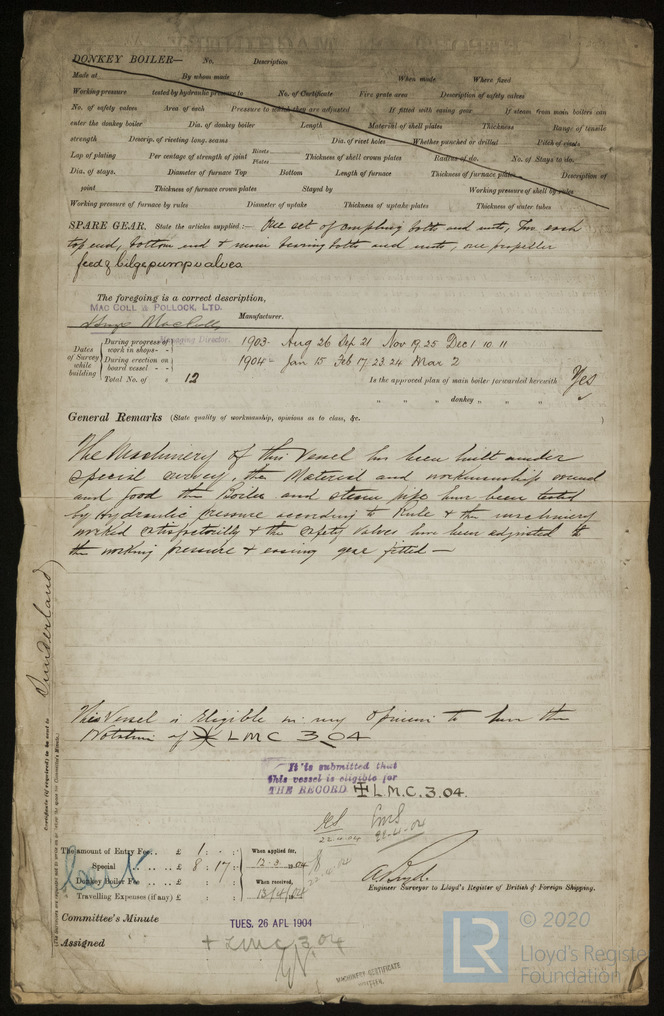 DONKEY BOILER— No. Description
Made at By whom made When made Where fixed
Working pressure tested by hydraulic pressure to No. of Certificate Fire grate area Description of safety valves
No. of safety valves Area of each Pressure to which they are adjusted If fitted with easing gear If steam from main boilers can
enter the donkey boiler Dia. of donkey boiler Length Material of shell plates Thickness Range of tensile
strength Descrip. of riveting long. seams Dia. of rivet holes Whether punched or drilled Pitch of rivets
Lap of plating Per centage of strength of joint Rivets Plates Thickness of shell crown plates Radius of do. No. of Stays to do.
Dia. of stays. Diameter of furnace Top Bottom Length of furnace Thickness of furnace plates Description of
joint Thickness of furnace crown plates Stayed by Working pressure of shell by rules
Working pressure of furnace by rules Diameter of uptake Thickness of uptake plates Thickness of water tubes
SPARE GEAR. State the articles supplied:— One set of coupling bolts and nuts, two each
top end, bottom end & main bearing bolts and nuts, one propeller
feed & bilge pump valves.
The foregoing is a correct description,
MAC COLL & POLLOCK, LTD.
Hugo MacColl Manufacturer.
Managing Director.
Dates of Survey while building
During progress of work in shops - - 1903- Aug 26 Sep 21 Nov 19, 25 Dec 1 10 11
During erection on board vessel - - 1904- Jan 15 Feb 17, 23. 24 Mar 2
Total No. of 12 Is the approved plan of main boiler forwarded herewith Yes
" " " donkey " " "
General Remarks (State quality of workmanship, opinions as to class, &c.
The Machinery of this Vessel has been built under
special survey, the Material and workmanship sound
and good the Boiler and steam pipe have been tested
by Hydraulic pressure according to Rule & the machinery
worked satisfactorily & the safety valves have been adjusted to
the working pressure & easing gear fitted —
Sunderland
Certificate (if required) to be sent to
This Vessel is Eligible in my Opinion to have the
Notation of LMC 3.04
It is submitted that
this vessel is eligible for
THE RECORD ✠ L.M.C. 3.04.
22.4.04
The amount of Entry Fee.. £ 1 : : When applied for,
Special .. .. .. .. £ 8 : 17 : 12.3.1904
Donkey Boiler Fee .. .. £ : : When received,
Travelling Expenses (if any) £ : : 13/4/04
22.4.04
Engineer Surveyor to Lloyd's Register of British & Foreign Shipping.
Committee's Minute TUES. 26 APL 1904
Assigned + LMC 3.04
MACHINERY CERTIFICATE
WRITTEN.
LR
© 2020
Lloyd's Registe
Foundation